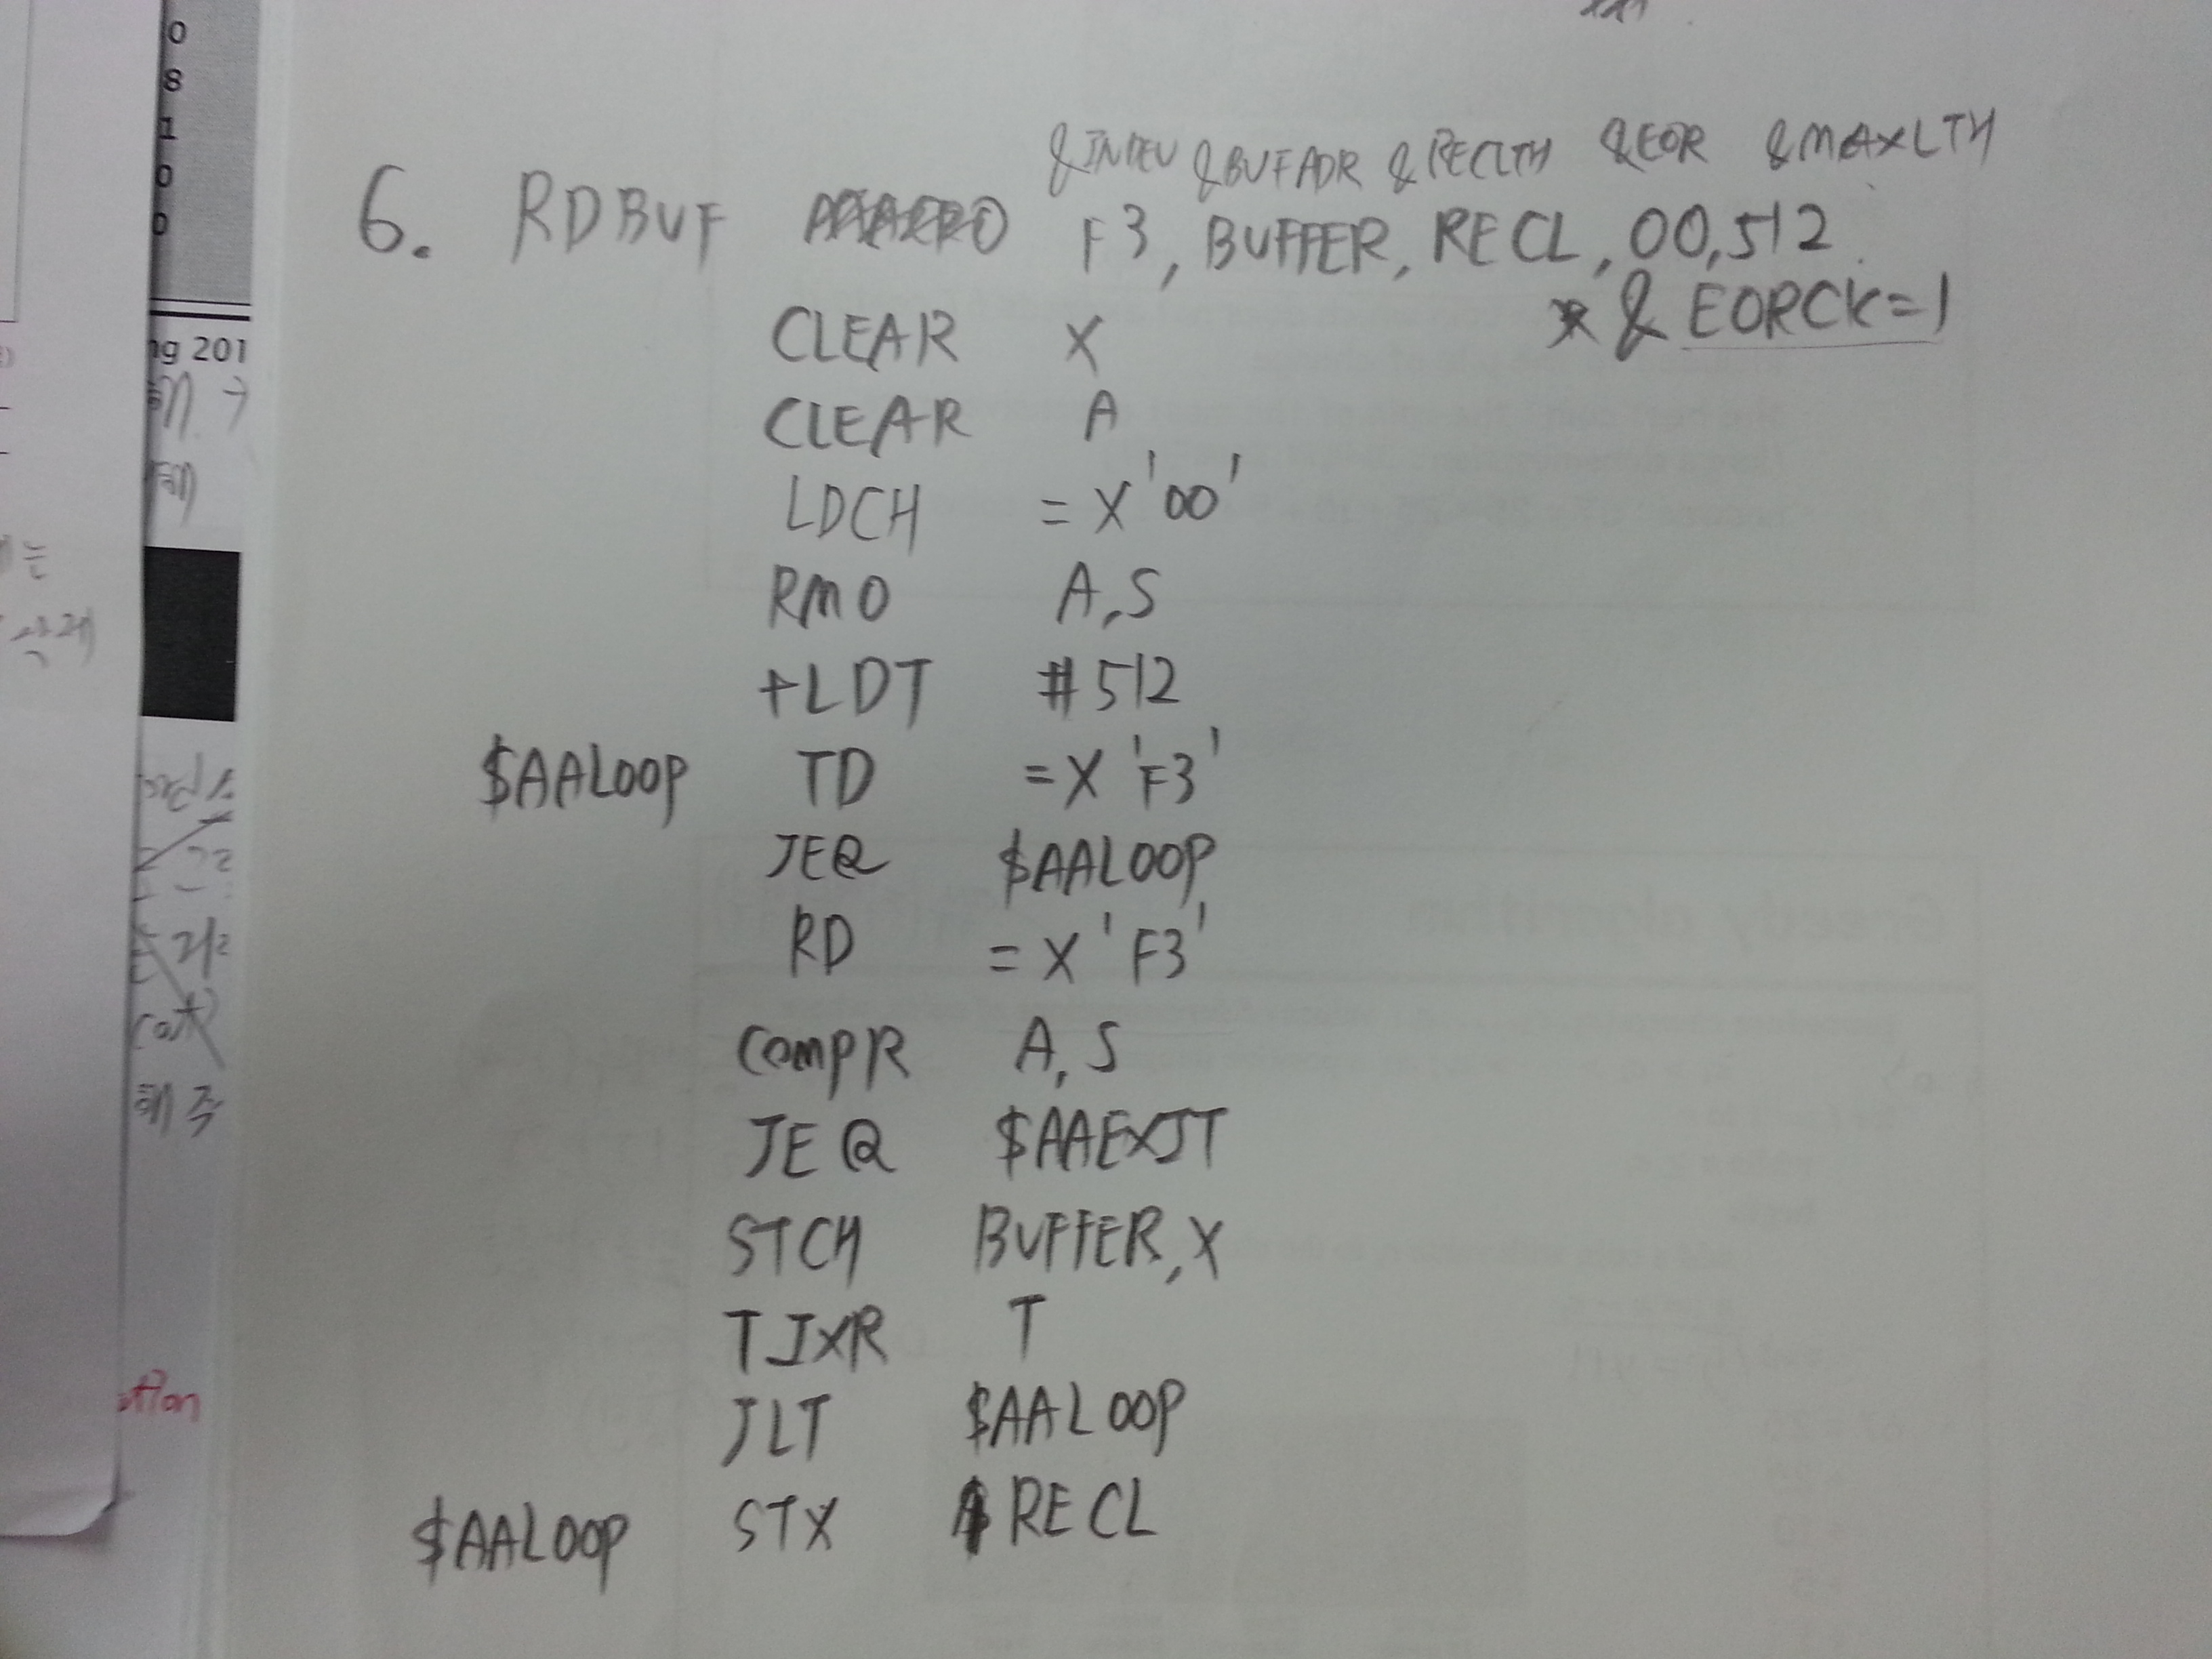 0
8
1
0
0
ng 201
&INDEV &BUFADR &RECLTH &EOR &MAXLTH
6. RDBUF F3, BUFFER, RECL, 00,512
* & EORCK=1
CLEAR X
CLEAR A
LDCH =X'00'
RMO A,S
+LDT #512
$AALOOP TD =X'F3'
JEQ $AALOOP
RD =X'F3'
COMPR A,S
JEQ $AAEXIT
STCH BUFFER,X
TIXR T
JLT $AALOOP
$AALOOP STX RECL
해주
ation